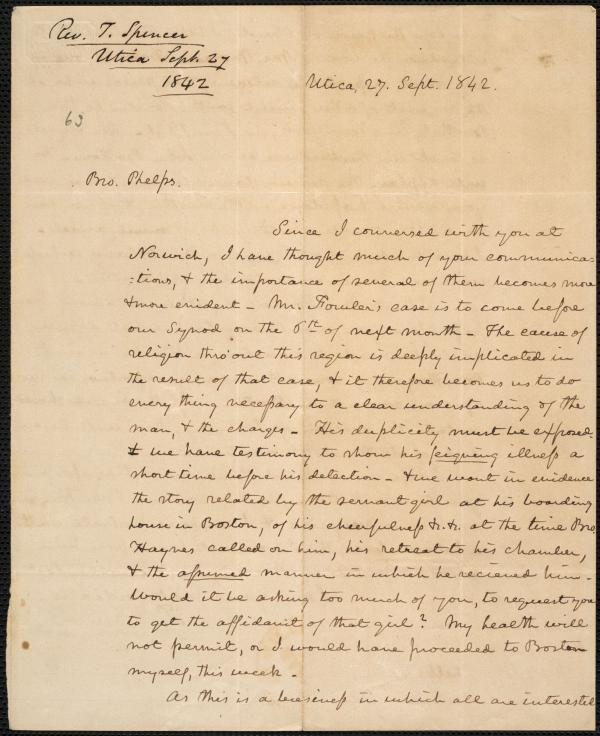 Rev. T. Spencer
Utica Sept. 27
1842
Utica, 27. Sept. 1842.
63
Bro. Phelps.
Since I conversed with you at
Norwich, I have thought much of your communica-
:tions, & the importance of several of them becomes more
& more evident - Mr. Fowler's case is to come before
our Synod on the 6th of next month - The cause of
religion thro'out this region is deeply implicated in
the result of that case, & it therefore becomes us to do
every thing necessary to a clear understanding of the
man, & the charges - His duplicity must be exposed.
& we have testimony to show his feigning illness a
short time before his detection - & we want in evidence
the story related by the servant girl at his boarding
house in Boston, of his cheerfulness &c. &c. at the time Bro.
Haynes called on him, his retreat to his chamber,
& the assumed manner in which he recieved him -
Would it be asking too much of you, to request you
to get the affidavit of that girl? My health will
not permit, or I would have proceeded to Boston
myself, this week -
As this is a business in which all are interested